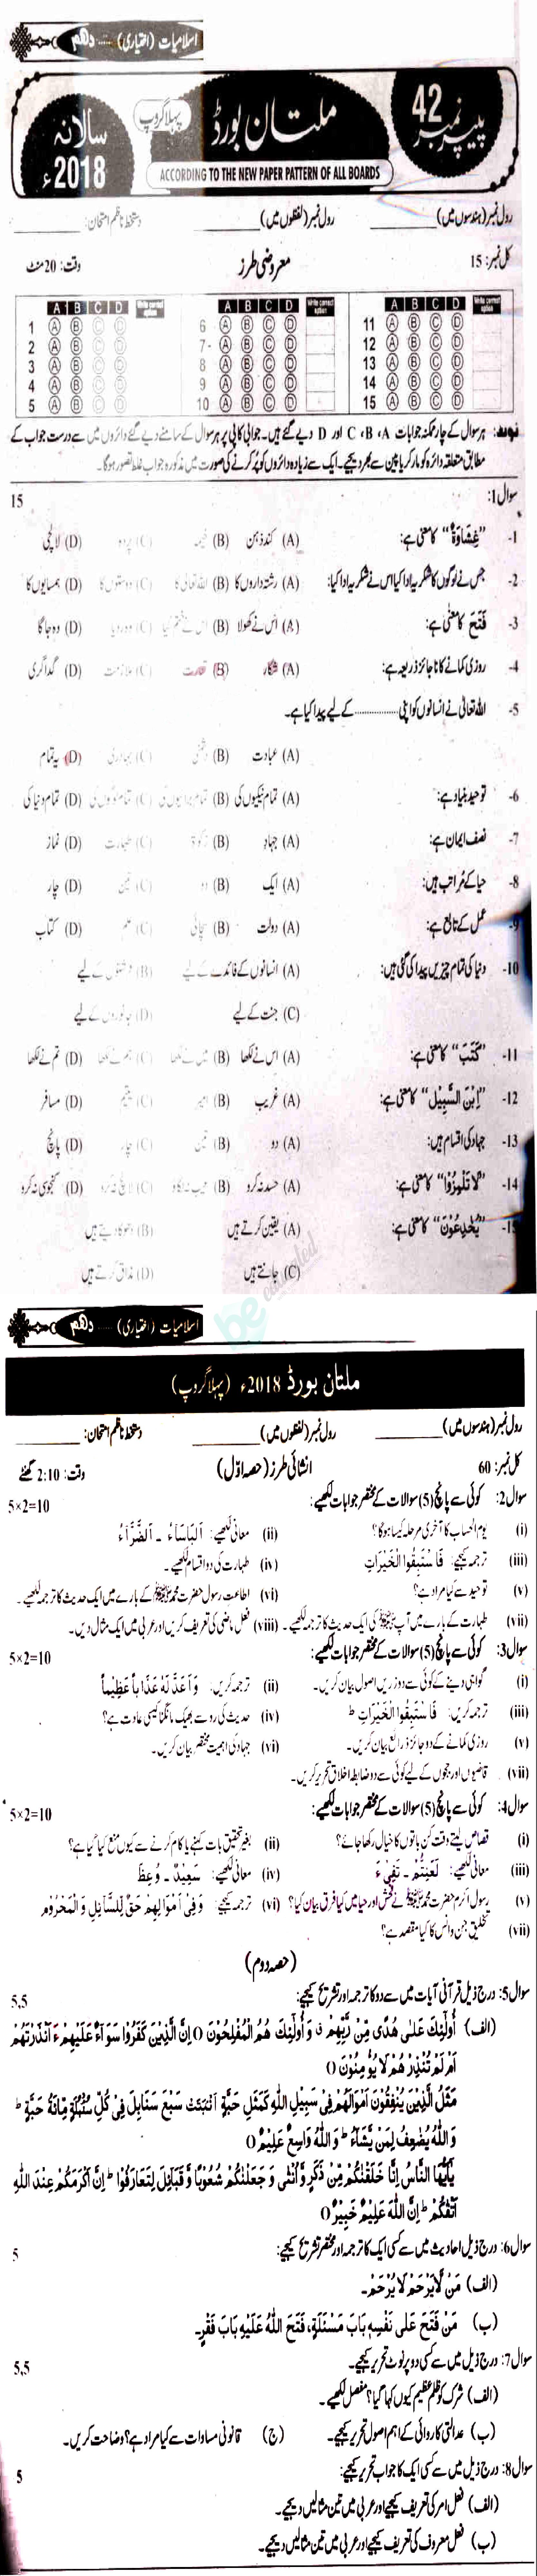 اسلامیات (اختیاری) ..... دہم
پیپر نمبر 42
ملتان بورڈ
پہلا گروپ
سالانہ 2018ء
ACCORDING TO THE NEW PAPER PATTERN OF ALL BOARDS
رول نمبر (ہندسوں میں) ________ رول نمبر (لفظوں میں) ________ دستخط ناظم امتحان: ________
کل نمبر: 15 معروضی طرز وقت: 20 منٹ
A B C D Write correct option A B C D Write correct option A B C D Write correct option
1 A B C D 6 A B C D 11 A B C D
2 A B C D 7 A B C D 12 A B C D
3 A B C D 8 A B C D 13 A B C D
4 A B C D 9 A B C D 14 A B C D
5 A B C D 10 A B C D 15 A B C D
نوٹ: ہر سوال کے چار ممکنہ جوابات A، B، C اور D دیے گئے ہیں۔ جوابی کاپی پر ہر سوال کے سامنے دیے گئے دائروں میں سے درست جواب کے
مطابق متعلقہ دائرہ کو مارکر یا پین سے بھر دیجیے۔ ایک سے زیادہ دائروں کو پُر کرنے کی صورت میں مذکورہ جواب غلط تصور ہوگا۔
سوال 1: 15
1- "غِشَاوَةٌ" کا معنی ہے: (A) کند ذہن (B) خیمہ (C) پردہ (D) لالچی
2- جس نے لوگوں کا شکریہ ادا کیا اس نے شکریہ ادا کیا: (A) رشتہ داروں کا (B) اللہ تعالیٰ کا (C) دوستوں کا (D) ہمسایوں کا
3- فَتَحَ کا معنی ہے: (A) اس نے کھولا (B) اس نے ختم کیا (C) وہ رویا (D) وہ جاگا
4- روزی کمانے کا ناجائز ذریعہ ہے: (A) شکار (B) تجارت (C) ملازمت (D) گداگری
5- اللہ تعالیٰ نے انسانوں کو اپنی ............ کے لیے پیدا کیا ہے۔
(A) عبادت (B) دشمنی (C) ہمدردی (D) یہ تمام
6- توحید بنیاد ہے: (A) تمام نیکیوں کی (B) تمام برائیوں کی (C) تمام لوگوں کی (D) تمام دنیا کی
7- نصف ایمان ہے: (A) جہاد (B) زکوٰۃ (C) طہارت (D) نماز
8- حیا کے مراتب ہیں: (A) ایک (B) دو (C) تین (D) چار
9- عمل کے تابع ہے: (A) دولت (B) سچائی (C) علم (D) کتاب
10- دنیا کی تمام چیزیں پیدا کی گئی ہیں: (A) انسانوں کے فائدے کے لیے (B) فرشتوں کے لیے
(C) جنت کے لیے (D) جانوروں کے لیے
11- "كَتَبَ" کا معنی ہے: (A) اس نے لکھا (B) میں نے لکھا (C) ہم نے لکھا (D) تم نے لکھا
12- "اِبْنَ السَّبِيْلِ" کا معنی ہے: (A) غریب (B) امیر (C) یتیم (D) مسافر
13- جہاد کی اقسام ہیں: (A) دو (B) تین (C) چار (D) پانچ
14- "لَا تَلْمِزُوْا" کا معنی ہے: (A) حسد نہ کرو (B) عیب نہ لگاؤ (C) لالچ نہ کرو (D) کنجوسی نہ کرو
15- "يُخٰدِعُوْنَ" کا معنی ہے: (A) یقین کرتے ہیں (B) دھوکا دیتے ہیں
(C) جانتے ہیں (D) مذاق کرتے ہیں
اسلامیات (اختیاری) ..... دہم
ملتان بورڈ 2018ء (پہلا گروپ)
رول نمبر (ہندسوں میں) ________ رول نمبر (لفظوں میں) ________ دستخط ناظم امتحان: ________
کل نمبر: 60 انشائی طرز (حصہ اوّل) وقت: 2:10 گھنٹے
سوال 2: کوئی سے پانچ (5) سوالات کے مختصر جوابات لکھیے: 5×2=10
(i) یوم الحساب کا آخری مرحلہ کیسا ہوگا؟ (ii) معانی لکھیے: اَلْبَاسَاءُ ۔ اَلضَّرَّاءُ
(iii) ترجمہ کیجیے: فَاسْتَبِقُوا الْخَيْرَاتِ (iv) طہارت کی دو اقسام لکھیے۔
(v) توحید سے کیا مراد ہے؟ (vi) اطاعت رسول حضرت محمد ﷺ کے بارے میں ایک حدیث کا ترجمہ لکھیے۔
(vii) طہارت کے بارے میں آپ ﷺ کی ایک حدیث کا ترجمہ لکھیے۔ (viii) فعل ماضی کی تعریف کریں اور عربی میں ایک مثال دیں۔
سوال 3: کوئی سے پانچ (5) سوالات کے مختصر جوابات لکھیے: 5×2=10
(i) گواہی دینے کے کوئی سے دو زریں اصول بیان کریں۔ (ii) ترجمہ کریں: وَاَعَدَّ لَهٗ عَذَابًا عَظِيْمًا
(iii) ترجمہ کریں: فَاسْتَبِقُوا الْخَيْرَاتِ ط (iv) حدیث کی رو سے بھیک مانگنا کیسی عادت ہے؟
(v) روزی کمانے کے دو جائز ذرائع بیان کریں۔ (vi) جہاد کی اہمیت مختصر بیان کریں۔
(vii) قاضیوں اور ججوں کے لیے کوئی سے دو ضابطہ اخلاق تحریر کریں۔
سوال 4: کوئی سے پانچ (5) سوالات کے مختصر جوابات لکھیے: 5×2=10
(i) قصاص لیتے وقت کن باتوں کا خیال رکھا جائے؟ (ii) بغیر تحقیق بات کہنے یا کام کرنے سے کیوں منع کیا گیا ہے؟
(iii) معانی لکھیے: لَعَنِتُّمْ ۔ تَفِیْٓءَ (iv) معانی لکھیے: سَعِيْدٌ ۔ وُعِظَ
(v) رسول اکرم حضرت محمد ﷺ نے فحش اور حیا میں کیا فرق بیان کیا؟ (vi) ترجمہ کیجیے: وَفِیْ اَمْوَالِهِمْ حَقٌّ لِّلسَّآئِلِ وَالْمَحْرُوْمِ
(vii) تخلیق جن و انس کا کیا مقصد ہے؟
(حصہ دوم)
سوال 5: درج ذیل قرآنی آیات میں سے دو کا ترجمہ اور تشریح کیجیے: 5,5
(الف) اُولٰٓئِكَ عَلٰى هُدًى مِّنْ رَّبِّهِمْ ق وَاُولٰٓئِكَ هُمُ الْمُفْلِحُوْنَ O اِنَّ الَّذِيْنَ كَفَرُوْا سَوَآءٌ عَلَيْهِمْ ءَاَنْذَرْتَهُمْ
اَمْ لَمْ تُنْذِرْهُمْ لَا يُؤْمِنُوْنَ O
مَثَلُ الَّذِيْنَ يُنْفِقُوْنَ اَمْوَالَهُمْ فِیْ سَبِيْلِ اللّٰهِ كَمَثَلِ حَبَّةٍ اَنْبَتَتْ سَبْعَ سَنَابِلَ فِیْ كُلِّ سُنْبُلَةٍ مِّائَةُ حَبَّةٍ ط
وَاللّٰهُ يُضٰعِفُ لِمَنْ يَّشَآءُ ط وَاللّٰهُ وَاسِعٌ عَلِيْمٌ O
يٰٓاَيُّهَا النَّاسُ اِنَّا خَلَقْنٰكُمْ مِّنْ ذَكَرٍ وَّاُنْثٰى وَجَعَلْنٰكُمْ شُعُوْبًا وَّقَبَآئِلَ لِتَعَارَفُوْا ط اِنَّ اَكْرَمَكُمْ عِنْدَ اللّٰهِ
اَتْقٰكُمْ ط اِنَّ اللّٰهَ عَلِيْمٌ خَبِيْرٌ O
سوال 6: درج ذیل احادیث میں سے کسی ایک کا ترجمہ اور مختصر تشریح کیجیے: 5
(الف) مَنْ لَّا يَرْحَمْ لَا يُرْحَمْ۔
(ب) مَنْ فَتَحَ عَلٰى نَفْسِهٖ بَابَ مَسْئَلَةٍ، فَتَحَ اللّٰهُ عَلَيْهِ بَابَ فَقْرٍ۔
سوال 7: درج ذیل میں سے کسی دو پر نوٹ تحریر کیجیے۔ 5,5
(الف) شرک کو ظلم عظیم کیوں کہا گیا؟ مفصل لکھیے۔
(ب) عدالتی کاروائی کے اہم اصول تحریر کیجیے۔ (ج) قانونی مساوات سے کیا مراد ہے؟ وضاحت کریں۔
سوال 8: درج ذیل میں سے کسی ایک کا جواب تحریر کیجیے: 5
(الف) فعل امر کی تعریف کیجیے اور عربی میں تین مثالیں دیجیے۔
(ب) فعل معروف کی تعریف کیجیے اور عربی میں تین مثالیں دیجیے۔